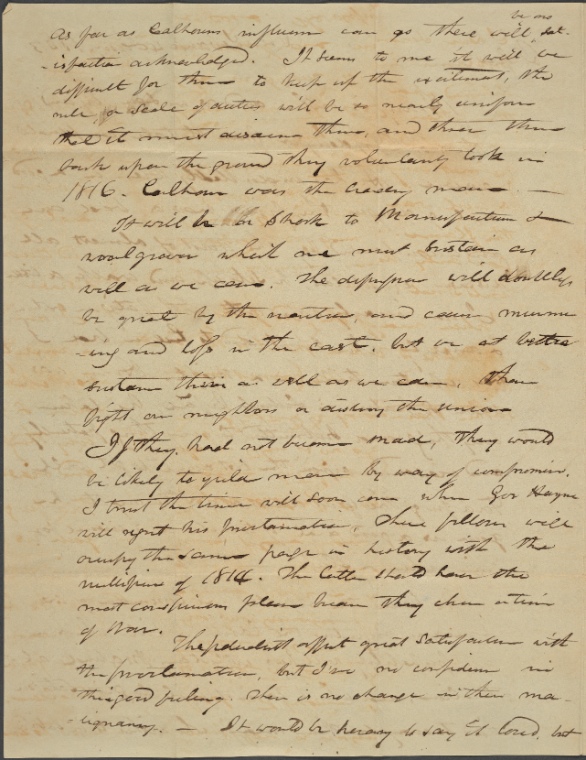 as far as Calhouns influence can go there will be no sat-
isfaction acknowledged. It seems to me it will be
difficult for them to keep up the excitement, the
rule, or scale of duties will be so nearly uniform
that it must them, and throw them
back upon the ground they voluntarily took in
1816. Calhoun was the man —
It will be a shock to Manufacturers &
wool growers which we must sustain as
well as we can. The will doubtless
be great by the and cause murmur
-ing and loss in the east, but we had better
sustain their as well as we can, than
fight our neighbors or destroy the union
If they had not become mad, they would
be likely to yield more by way of compromise.
I trust the time will soon come when Gov Hayne
will regret his Proclamation, These fellows will
occupy the same page in history with the
nullifiers of 1814. The latter should have the
most conspicuous place because they chose a time
of War.
The federalists affect great satisfaction with
the proclamation, but I've no confidence in
this good feeling. There is no change in their ma-
-lignancy. — It would be heresy to say it loud, but